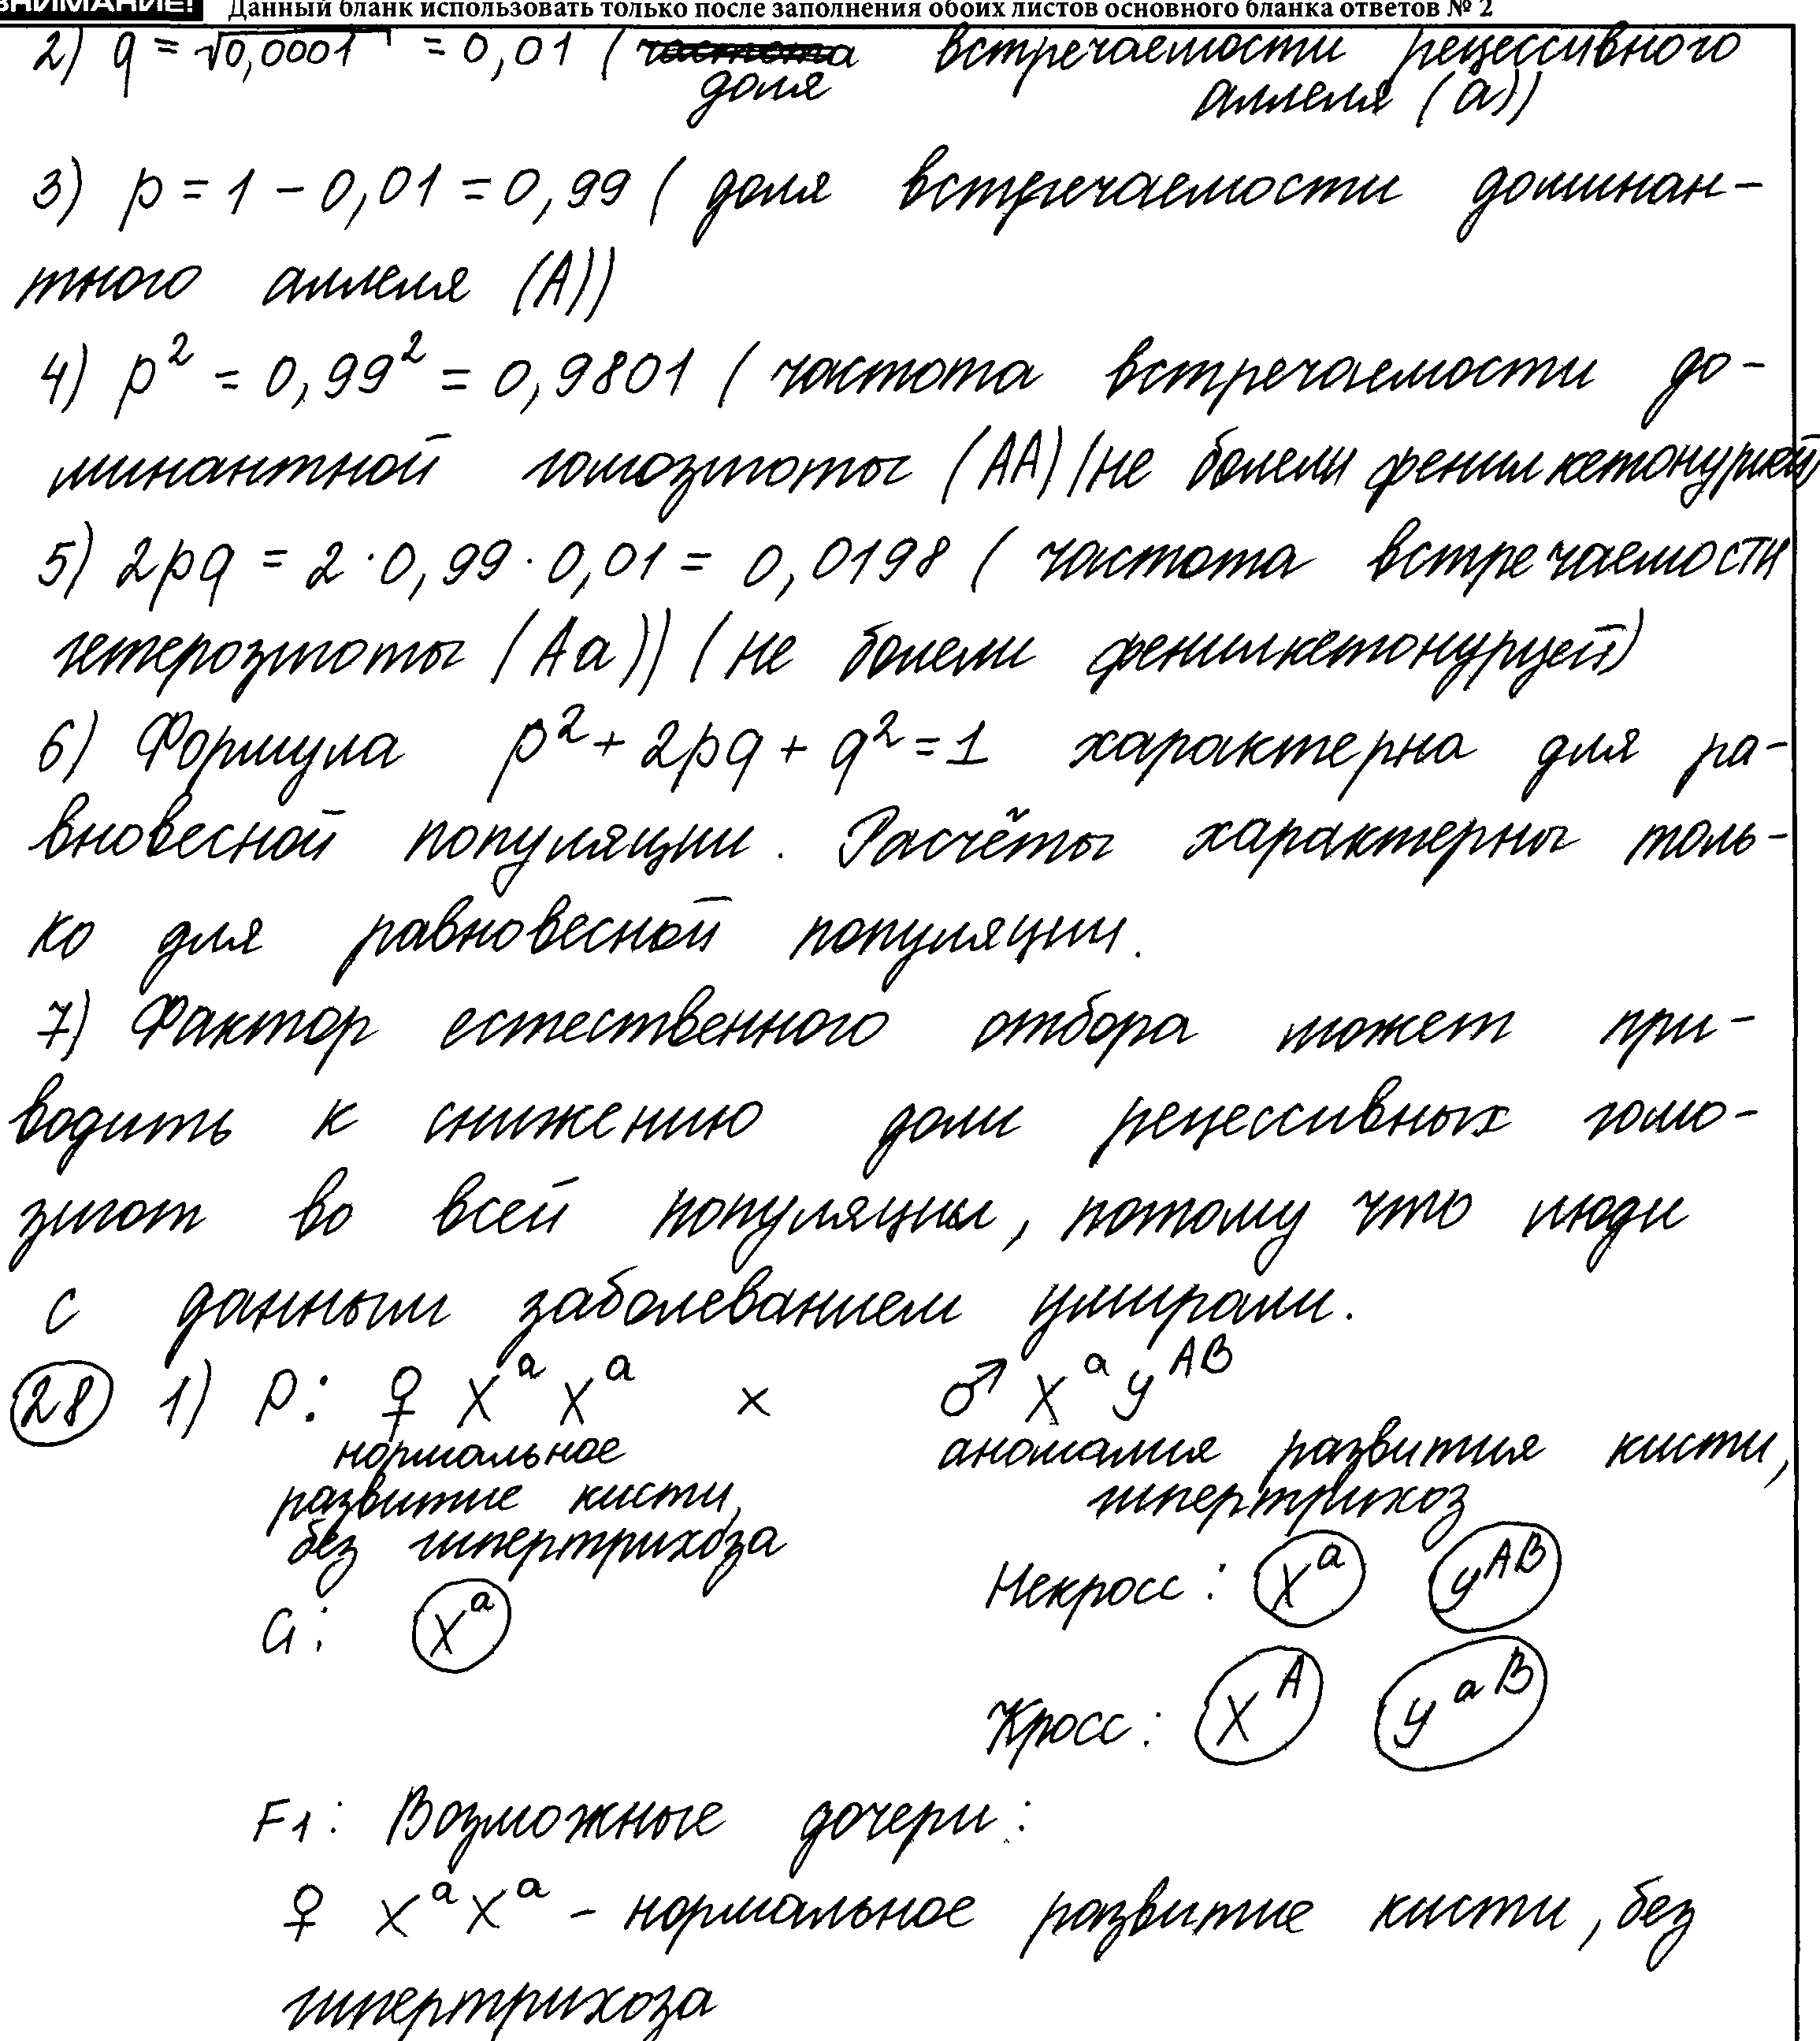 ВНИМАНИЕ! Данный бланк использовать только после заполнения обоих листов основного бланка ответов № 2
2) q = √0,0001 = 0,01 ( частота встречаемости рецессивного
доля аллеля (a))
3) p = 1 – 0,01 = 0,99 ( доля встречаемости доминан-
тного аллеля (A))
4) p² = 0,99² = 0,9801 ( частота встречаемости до-
минантной гомозиготы (AA) (не болели фенилкетонурией)
5) 2pq = 2 · 0,99 · 0,01 = 0,0198 ( частота встречаемости
гетерозиготы (Aa)) (не болели фенилкетонурцей)
6) Формула p² + 2pq + q² = 1 характерна для ра-
вновесной популяции. Расчёты характерны толь-
ко для равновесной популяции.
7) Фактор естественного отбора может при-
водить к снижению доли рецессивных гомо-
зигот во всей популяции, потому что люди
с данным заболеванием умирали.
28 1) P: ♀ XᵃXᵃ x ♂ XᵃYᴬᴮ
нормальное аномалия развития кисти,
развитие кисти, гипертрихоз
без гипертрихоза
Некросс: Xᵃ Yᴬᴮ
G: Xᵃ
Кросс: Xᴬ Yᵃᴮ
F1: Возможные дочери:
♀ XᵃXᵃ – нормальное развитие кисти, без
гипертрихоза